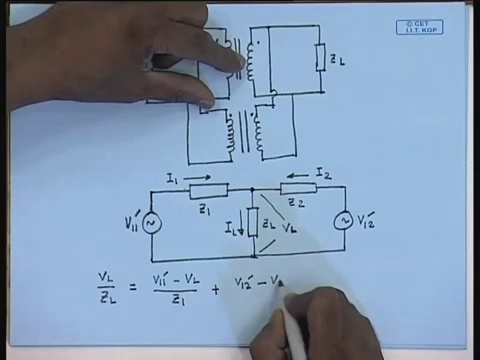 © CET
I.I.T. KGP
ZL
I1
I2
Z1
Z2
V11′
IL
ZL
VL
V12′
VL/ZL = (V11′ − VL)/Z1 + V12′ − V